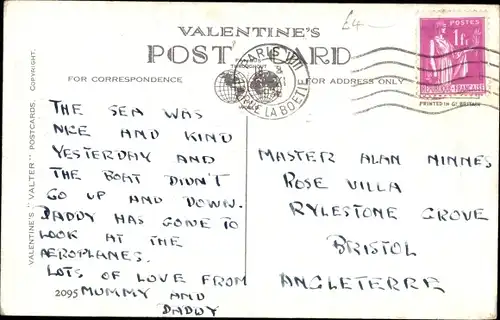 £4—
VALENTINE'S
POST CARD
FOR CORRESPONDENCE
FOR ADDRESS ONLY
PARIS VIII
RUE LA BOETIE
POSTES
1F.
REPUBLIQUE FRANÇAISE
PRINTED IN GT. BRITAIN
VALENTINE'S "VALTER" POSTCARDS. COPYRIGHT.
THE SEA WAS
NICE AND KIND
YESTERDAY AND
THE BOAT DIDN'T
GO UP AND DOWN.
DADDY HAS GONE TO
LOOK AT THE
AEROPLANES.
LOTS OF LOVE FROM
2095 MUMMY AND
DADDY
MASTER ALAN MINNES
ROSE VILLA
RYLESTONE GROVE
BRISTOL
ANGLETERRE